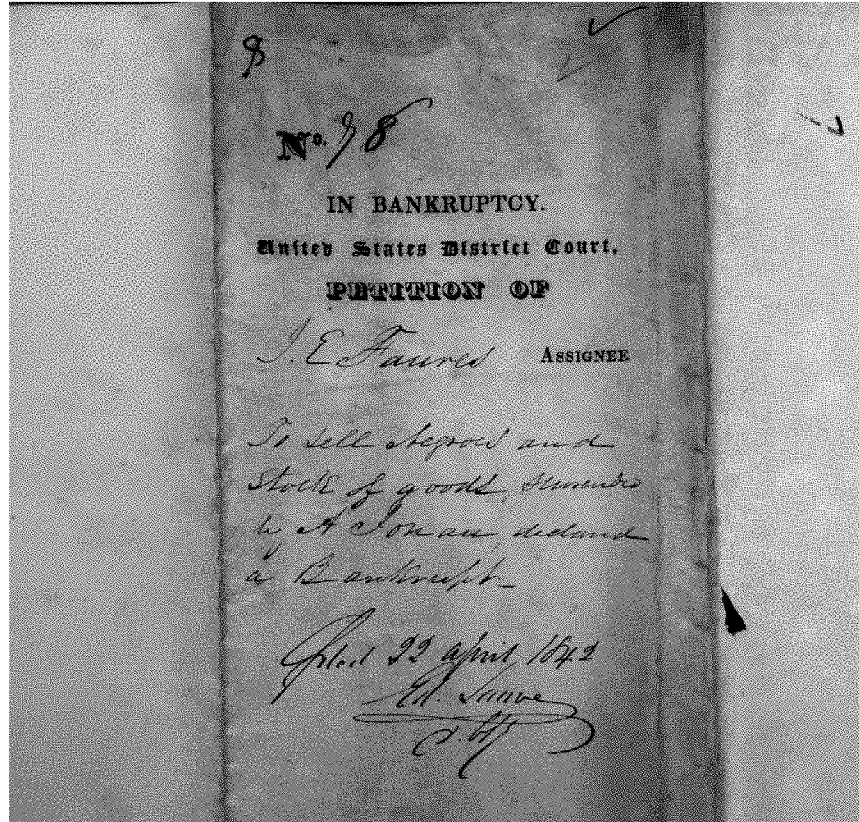 8
No. 98
IN BANKRUPTCY.
United States District Court.
PETITION OF
J. E. Faures ASSIGNEE
To sell Negroes and
Stock of goods
by A declared
a Bankrupt
filed 22 April 1842
Ed.